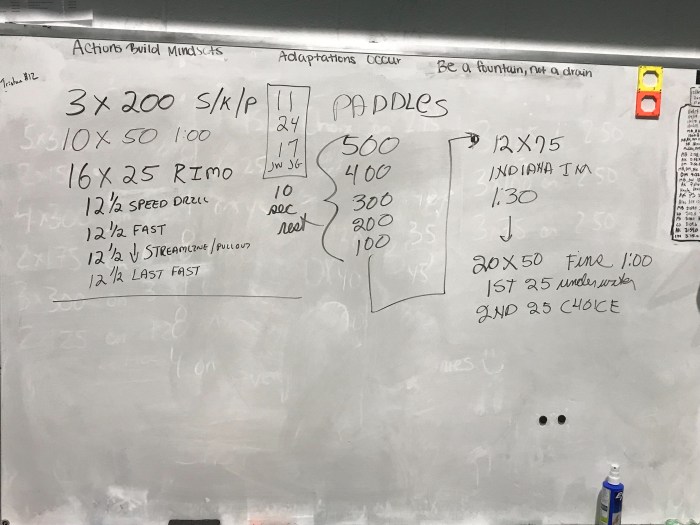 Actions Build Mindsets
Adaptations occur
Be a fountain, not a drain
3 X 200 S/K/P
10 X 50 1:00
16 X 25 RIMO
12 1/2 SPEED DRILL
12 1/2 FAST
12 1/2 ↓ STREAMLINE / PULLOUT
12 1/2 LAST FAST
11
24
17
JW JG
10
sec
rest
PADDLES
500
400
300
200
100
12 X 75
INDIANA IM
1:30
↓
20 X 50 Fins 1:00
1ST 25 underwater
2ND 25 CHOICE